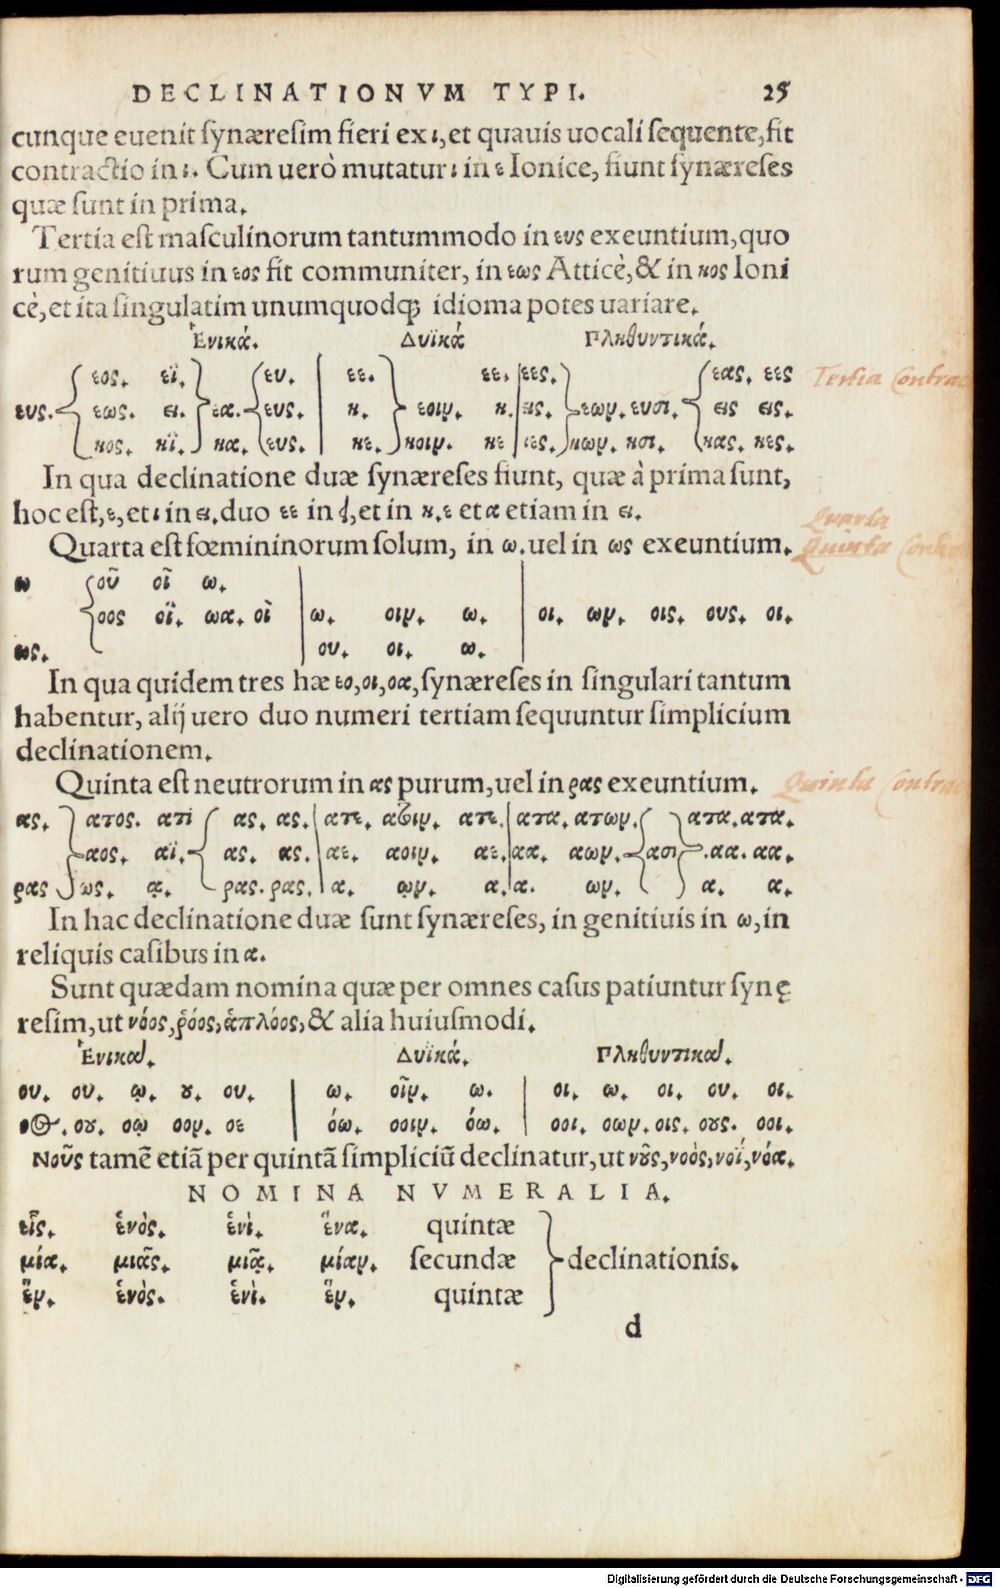 DECLINATIONVM TYPI. 25
cunque euenit synæresim fieri ex ι, et quauis uocali sequente, fit
contractio in ι. Cum uerò mutatur ι in ε Ionice, fiunt synæreses
quæ sunt in prima.
Tertia est masculinorum tantummodo in ευς exeuntium, quo
rum genitiuus in εος fit communiter, in εως Atticè, & in ηος Ioni
cè, et ita singulatim unumquodq; idioma potes uariare.
Ἑνικά. Δυϊκά Πληθυντικά.
εος. εϊ. ευ. εε. εε. εες. εας. εες Tertia Contrac
ευς. εως. ει. εα. ευς. η. εοιν. η. εις. εων. ευσι. εις εις.
ηος. ηϊ. ηα. ευς. ηε. ηοιν. ηε ηων. ησι. ηας. ηες.
In qua declinatione duæ synæreses fiunt, quæ à prima sunt,
hoc est, ε, et ι in ει. duo εε in et in η. ε et α etiam in ει.
Quarta
Quarta est fœmininorum solum, in ω. uel in ως exeuntium. Quinta
ω οῦ οῖ ω.
οος οϊ. ωα. οῖ ω. οιν. ω. οι. ων. οις. ους. οι.
ως. ου. οι. ω.
In qua quidem tres hæ εο, οι, οα, synæreses in singulari tantum
habentur, alij uero duo numeri tertiam sequuntur simplicium
declinationem.
Quinta est neutrorum in ας purum, uel in ρας exeuntium. Quinta Contrac
ας. ατος. ατι ας. ας. ατε. ατοιν. ατε. ατα. ατων. ατα. ατα.
αος. αϊ. ας. ας. αε. αοιν. αε. αα. αων. ασι .αα. αα.
ρας ως. ᾳ. ρας. ρας. α. ῳν. α. α. ων. α. α.
In hac declinatione duæ sunt synæreses, in genitiuis in ω, in
reliquis casibus in α.
Sunt quædam nomina quæ per omnes casus patiuntur synę
resim, ut νόος, ῥόος, ἁπλόος, & alia huiusmodi.
Ἑνικαί. Δυϊκά. Πληθυντικαί.
ου. ου. ῳ. ȣ. ου. ω. οῖν. ω. οι. ω. οι. ου. οι.
οος. οȣ. οῳ οον. οε όω. οοιν. όω. οοι. οων. οις. οȣς. οοι.
Νοῦς tamē etiā per quintā simpliciū declinatur, ut νȣ͂ς, νοὸς, νοϊ, νόα.
NOMINA NVMERALIA.
εἷς. ἑνὸς. ἑνὶ. ἕνα. quintæ
μία. μιᾶς. μιᾷ. μίαν. secundæ declinationis.
ἓν. ἑνὸς. ἑνὶ. ἓν. quintæ
d
Digitalisierung gefördert durch die Deutsche Forschungsgemeinschaft - DFG